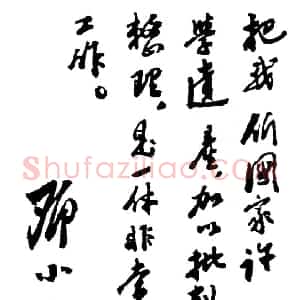 把我们國家许
學遗產加以批
整理,是一件非常
工作。
邓小
Shufaziliao.com